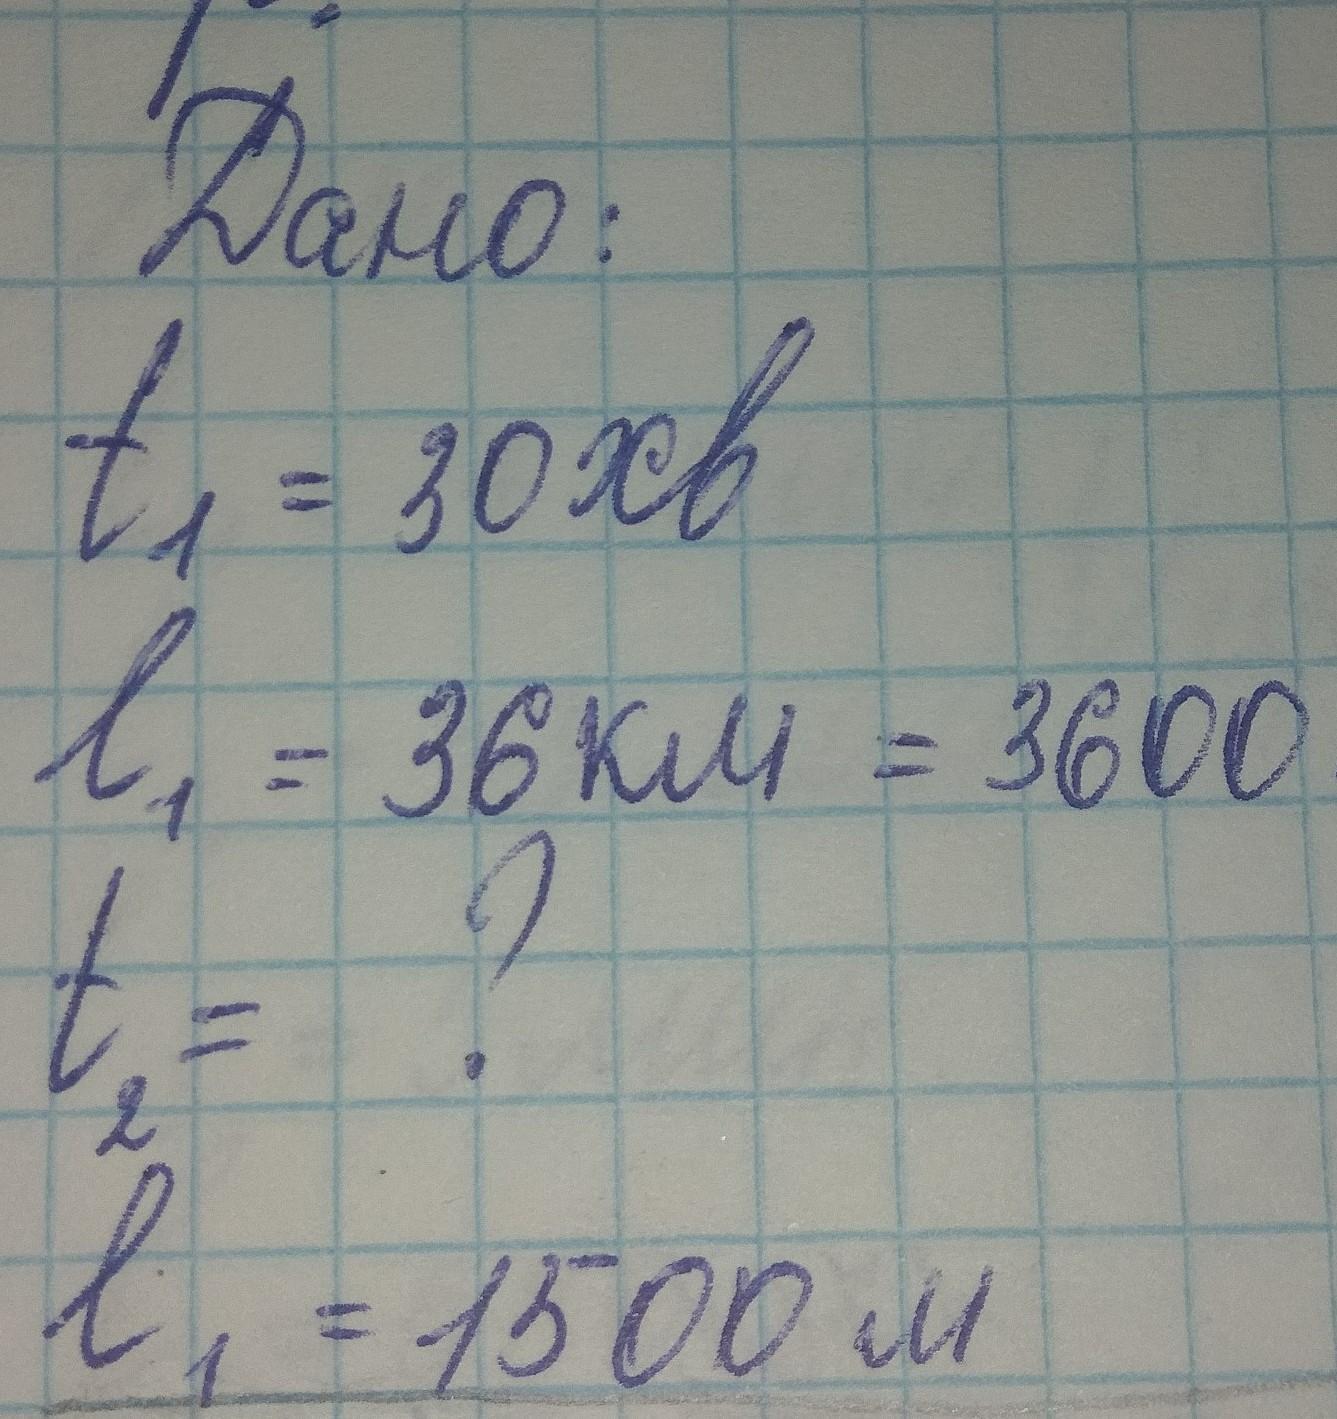 Дано:
t₁ = 30хв
l₁ = 36км = 3600
t₂ = ?
l₁ = 1500 м